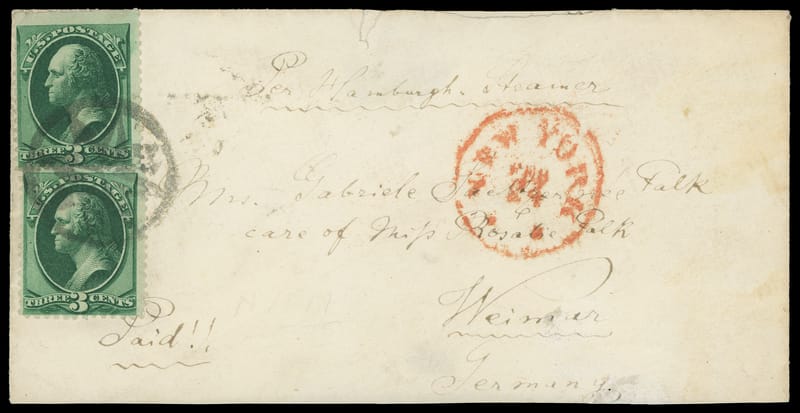 U.S. POSTAGE
THREE 3 CENTS
U.S. POSTAGE
THREE 3 CENTS
Per Hamburgh. Steamer
NEW YORK
Mrs. Gabriele née Falk
care of Miss Rosalie Falk
Weimar
Germany.
Paid!!